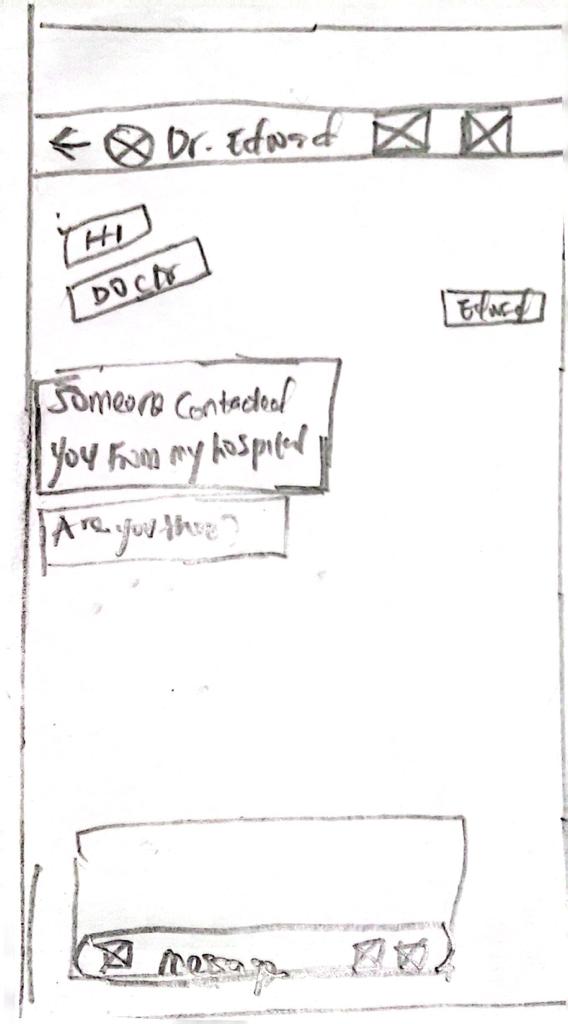 Dr. Edward
HI
DOCtr
Edward
Someone contacted
you from my hospital
Are you there?
message